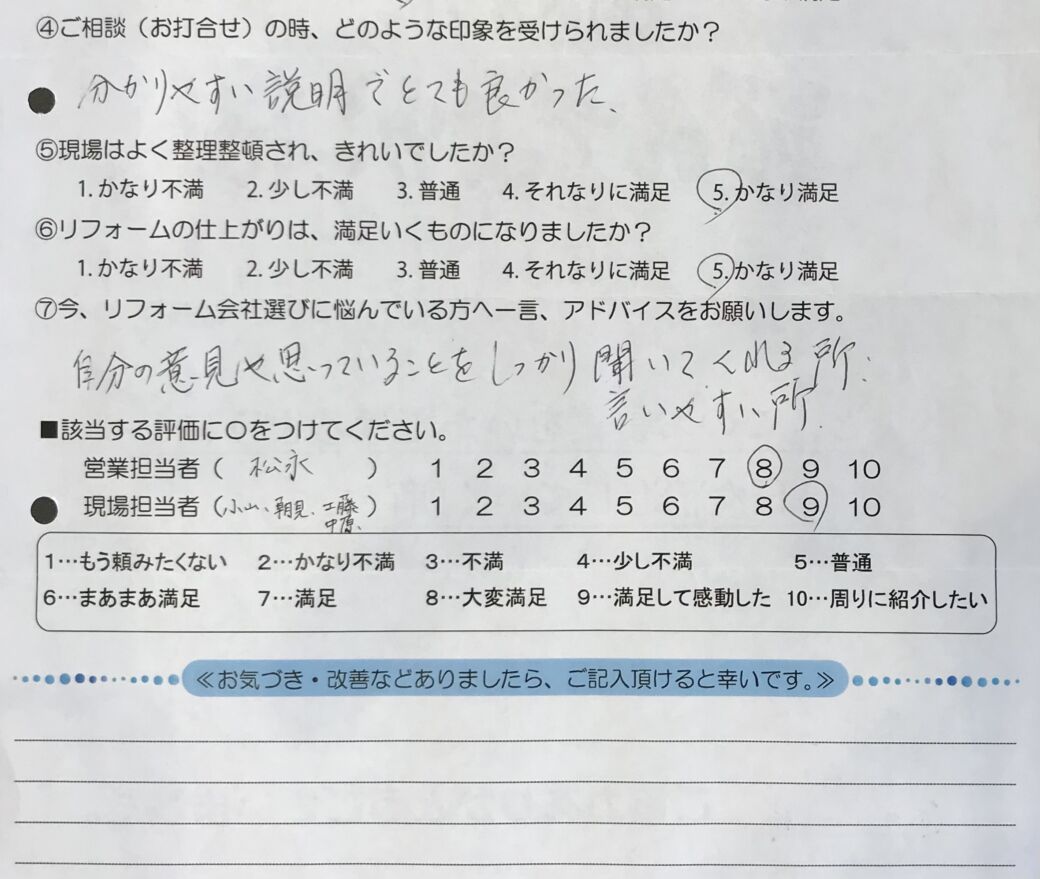 ④ご相談（お打合せ）の時、どのような印象を受けられましたか？
分かりやすい説明でとても良かった、
⑤現場はよく整理整頓され、きれいでしたか？
1. かなり不満 2. 少し不満 3. 普通 4. それなりに満足 5. かなり満足
⑥リフォームの仕上がりは、満足いくものになりましたか？
1. かなり不満 2. 少し不満 3. 普通 4. それなりに満足 5. かなり満足
⑦今、リフォーム会社選びに悩んでいる方へ一言、アドバイスをお願いします。
自分の意見や思っていることをしっかり聞いてくれる所.
言いやすい所.
■該当する評価に〇をつけてください。
営業担当者（ 松永 ） 1 2 3 4 5 6 7 8 9 10
現場担当者（小山、朝見、工藤 ） 1 2 3 4 5 6 7 8 9 10
中原、
1…もう頼みたくない 2…かなり不満 3…不満 4…少し不満 5…普通
6…まあまあ満足 7…満足 8…大変満足 9…満足して感動した 10…周りに紹介したい
≪お気づき・改善などありましたら、ご記入頂けると幸いです。≫